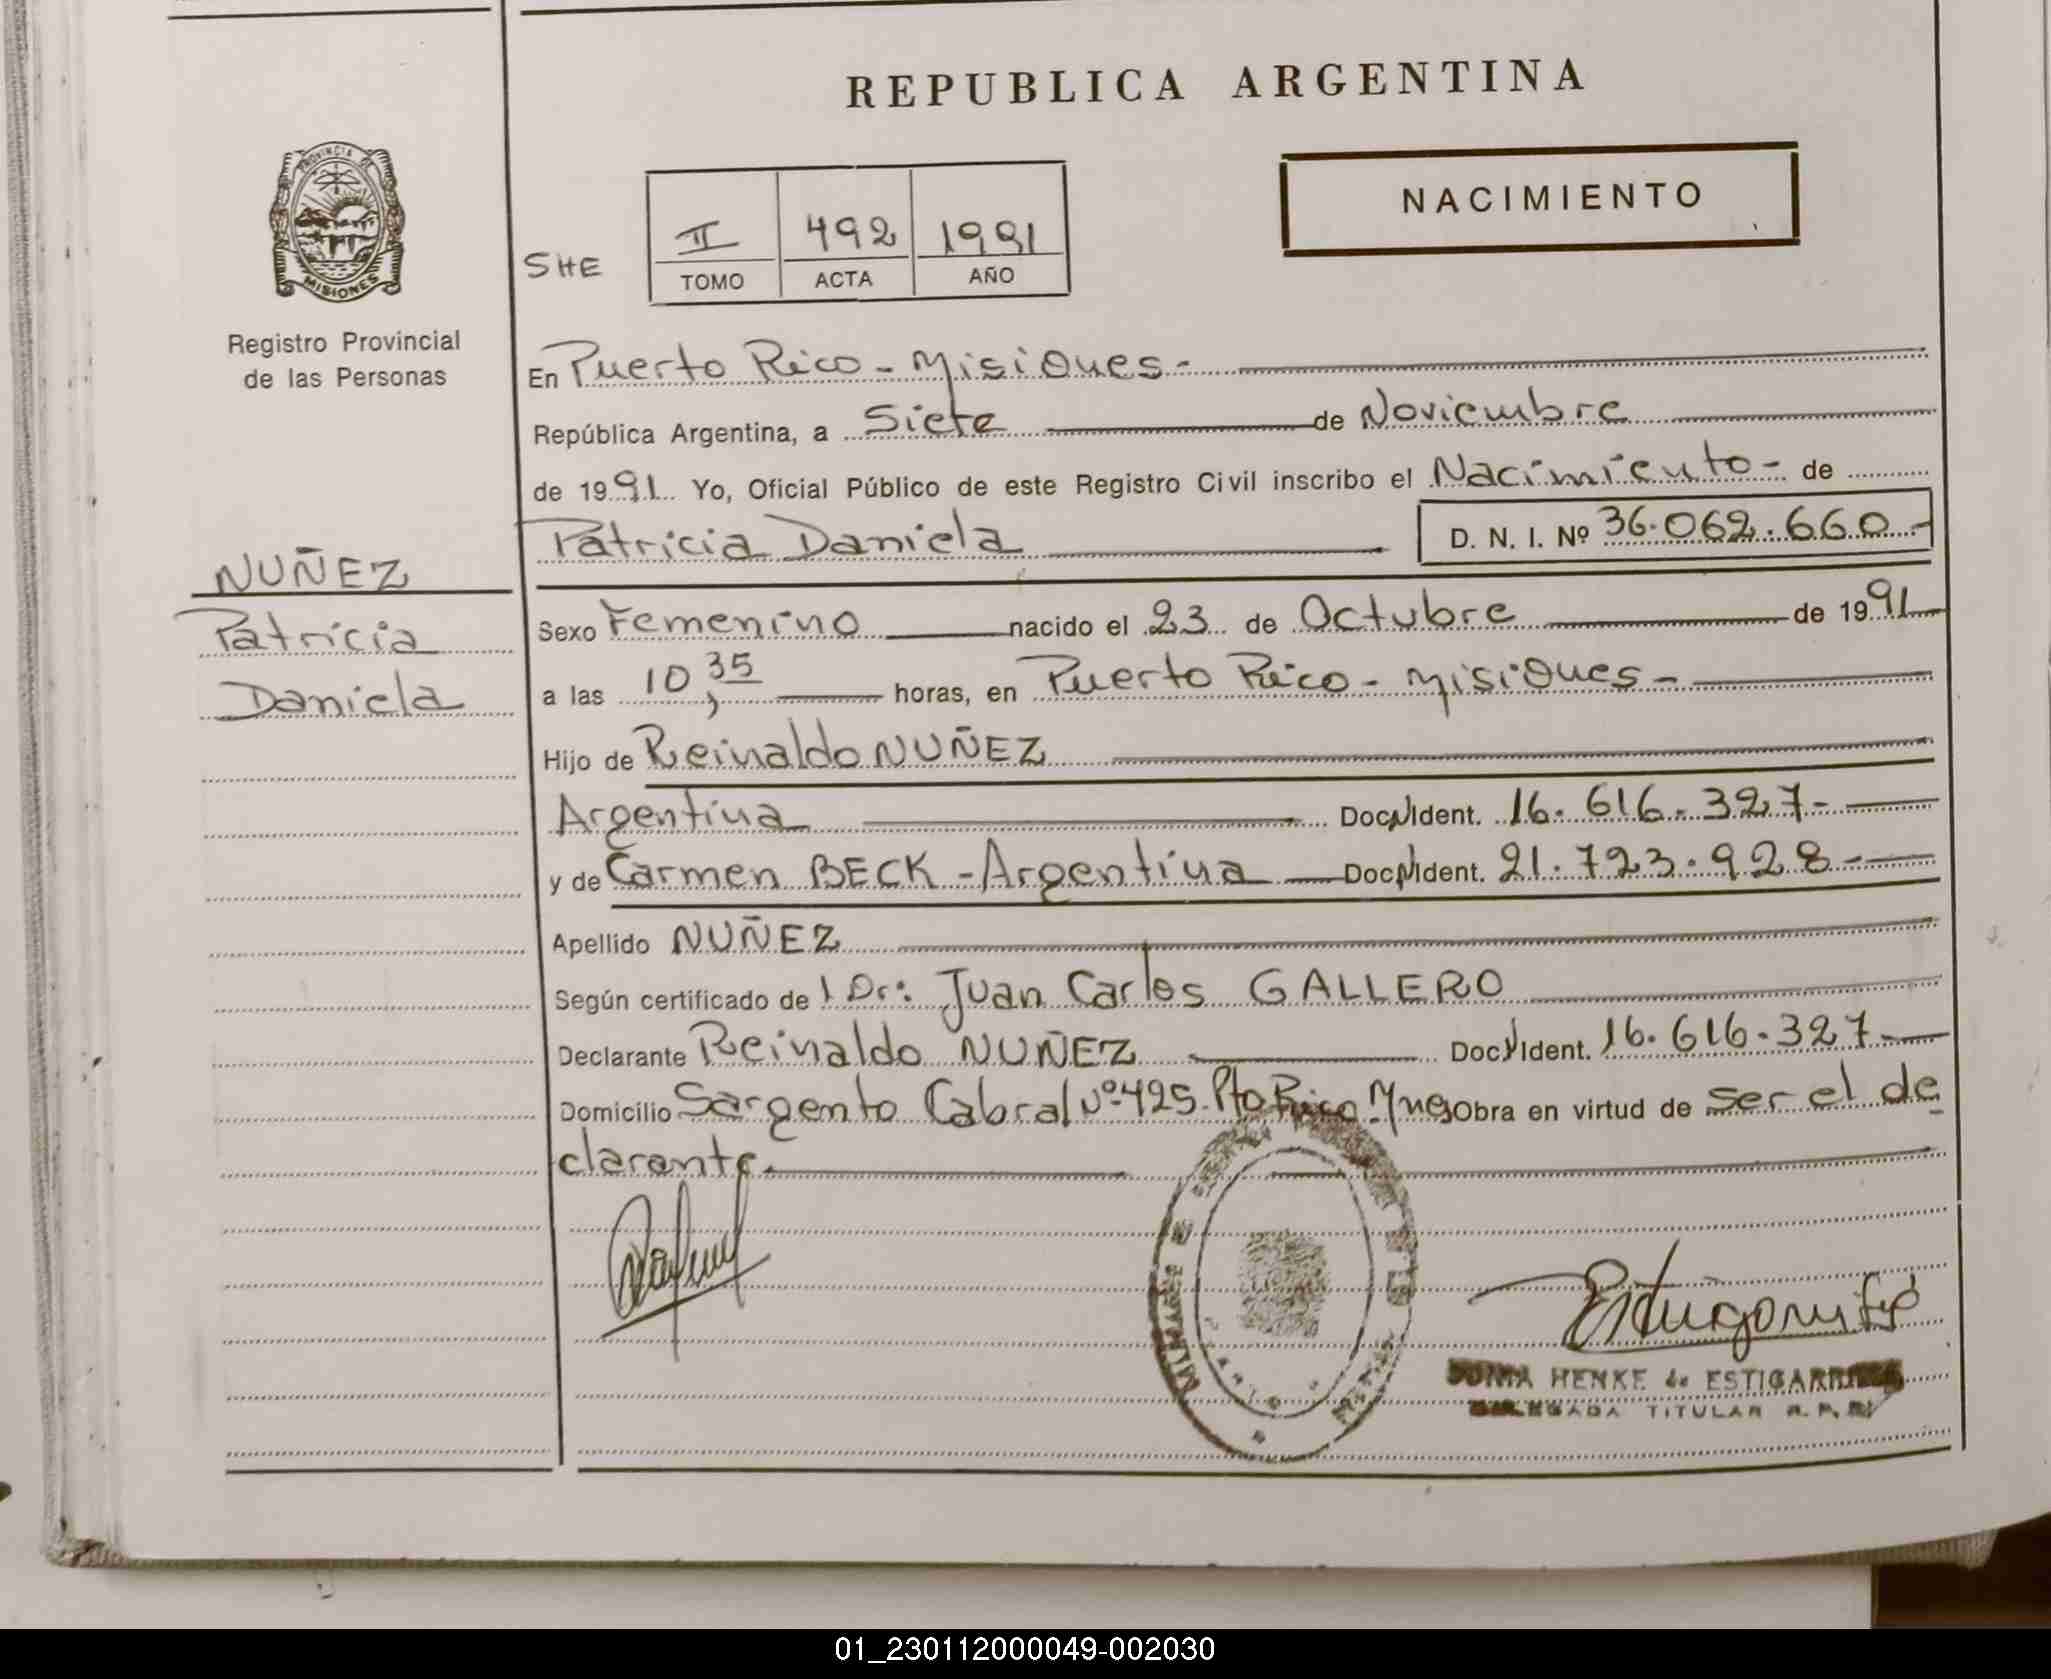 REPUBLICA ARGENTINA
PROVINCIA DE
MISIONES
Registro Provincial
de las Personas
NACIMIENTO
SHE
II 492 1991
TOMO ACTA AÑO
En Puerto Rico - Misiones -
República Argentina, a Siete de Noviembre
de 1991 Yo, Oficial Público de este Registro Civil inscribo el Nacimiento - de
Patricia Daniela D. N. I. Nº 36.062.660.-
NUÑEZ
Patricia
Daniela
Sexo Femenino nacido el 23 de Octubre de 1991
a las 10,35 horas, en Puerto Rico - Misiones -
Hijo de Reinaldo NUÑEZ
Argentina Doc. Ident. 16.616.327.-
y de Carmen BECK - Argentina Doc. Ident. 21.723.928.-
Apellido NUÑEZ
Según certificado de l Dr: Juan Carlos GALLERO
Declarante Reinaldo NUÑEZ Doc. Ident. 16.616.327.-
Domicilio Sargento Cabral Nº 425. Pto Rico. Mnes Obra en virtud de ser el de
clarante.
HENKE de ESTIGARRIBIA
DELEGADA TITULAR R. P.
01_230112000049-002030